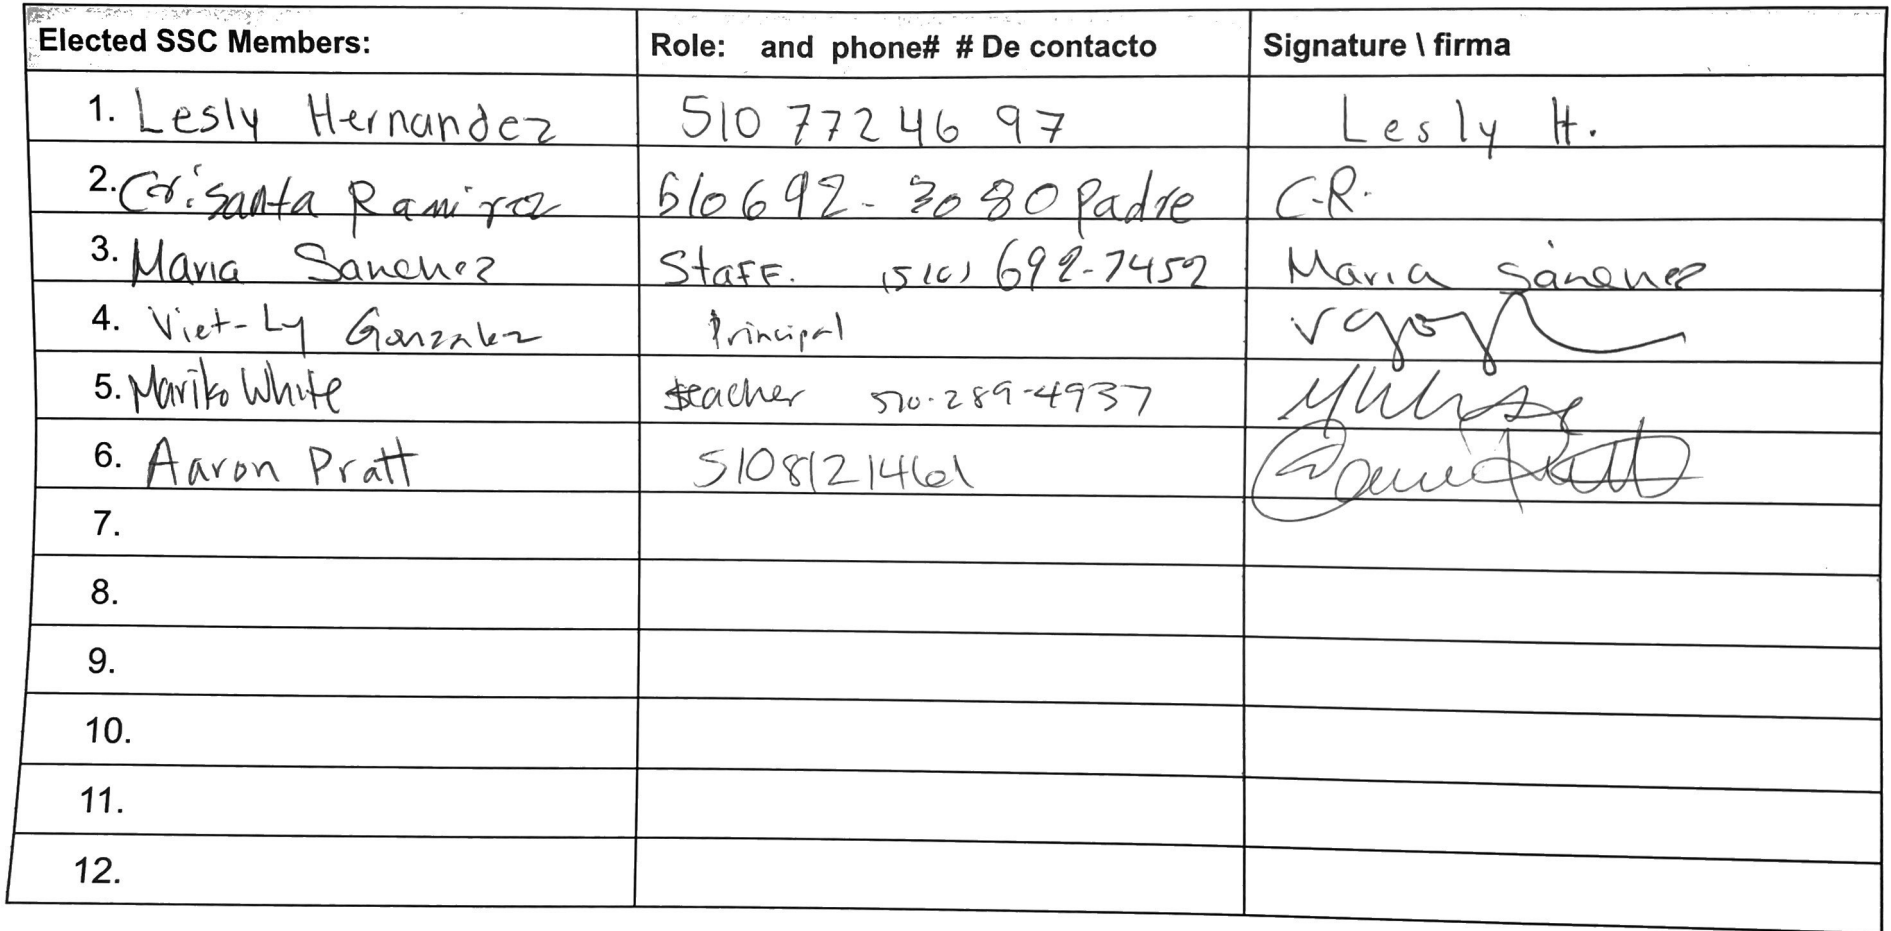 Elected SSC Members: Role: and phone# # De contacto Signature \ firma
1. Lesly Hernandez 510 772 46 97 Lesly H.
2. Crisanta Ramirez 510 692- 3080 Padre C.R.
3. Maria Sanchez Staff. (510) 692-7452 Maria Sánchez
4. Viet-Ly Gonzalez Principal
5. Mariko White teacher 510-289-4937
6. Aaron Pratt 5108121461
7.
8.
9.
10.
11.
12.